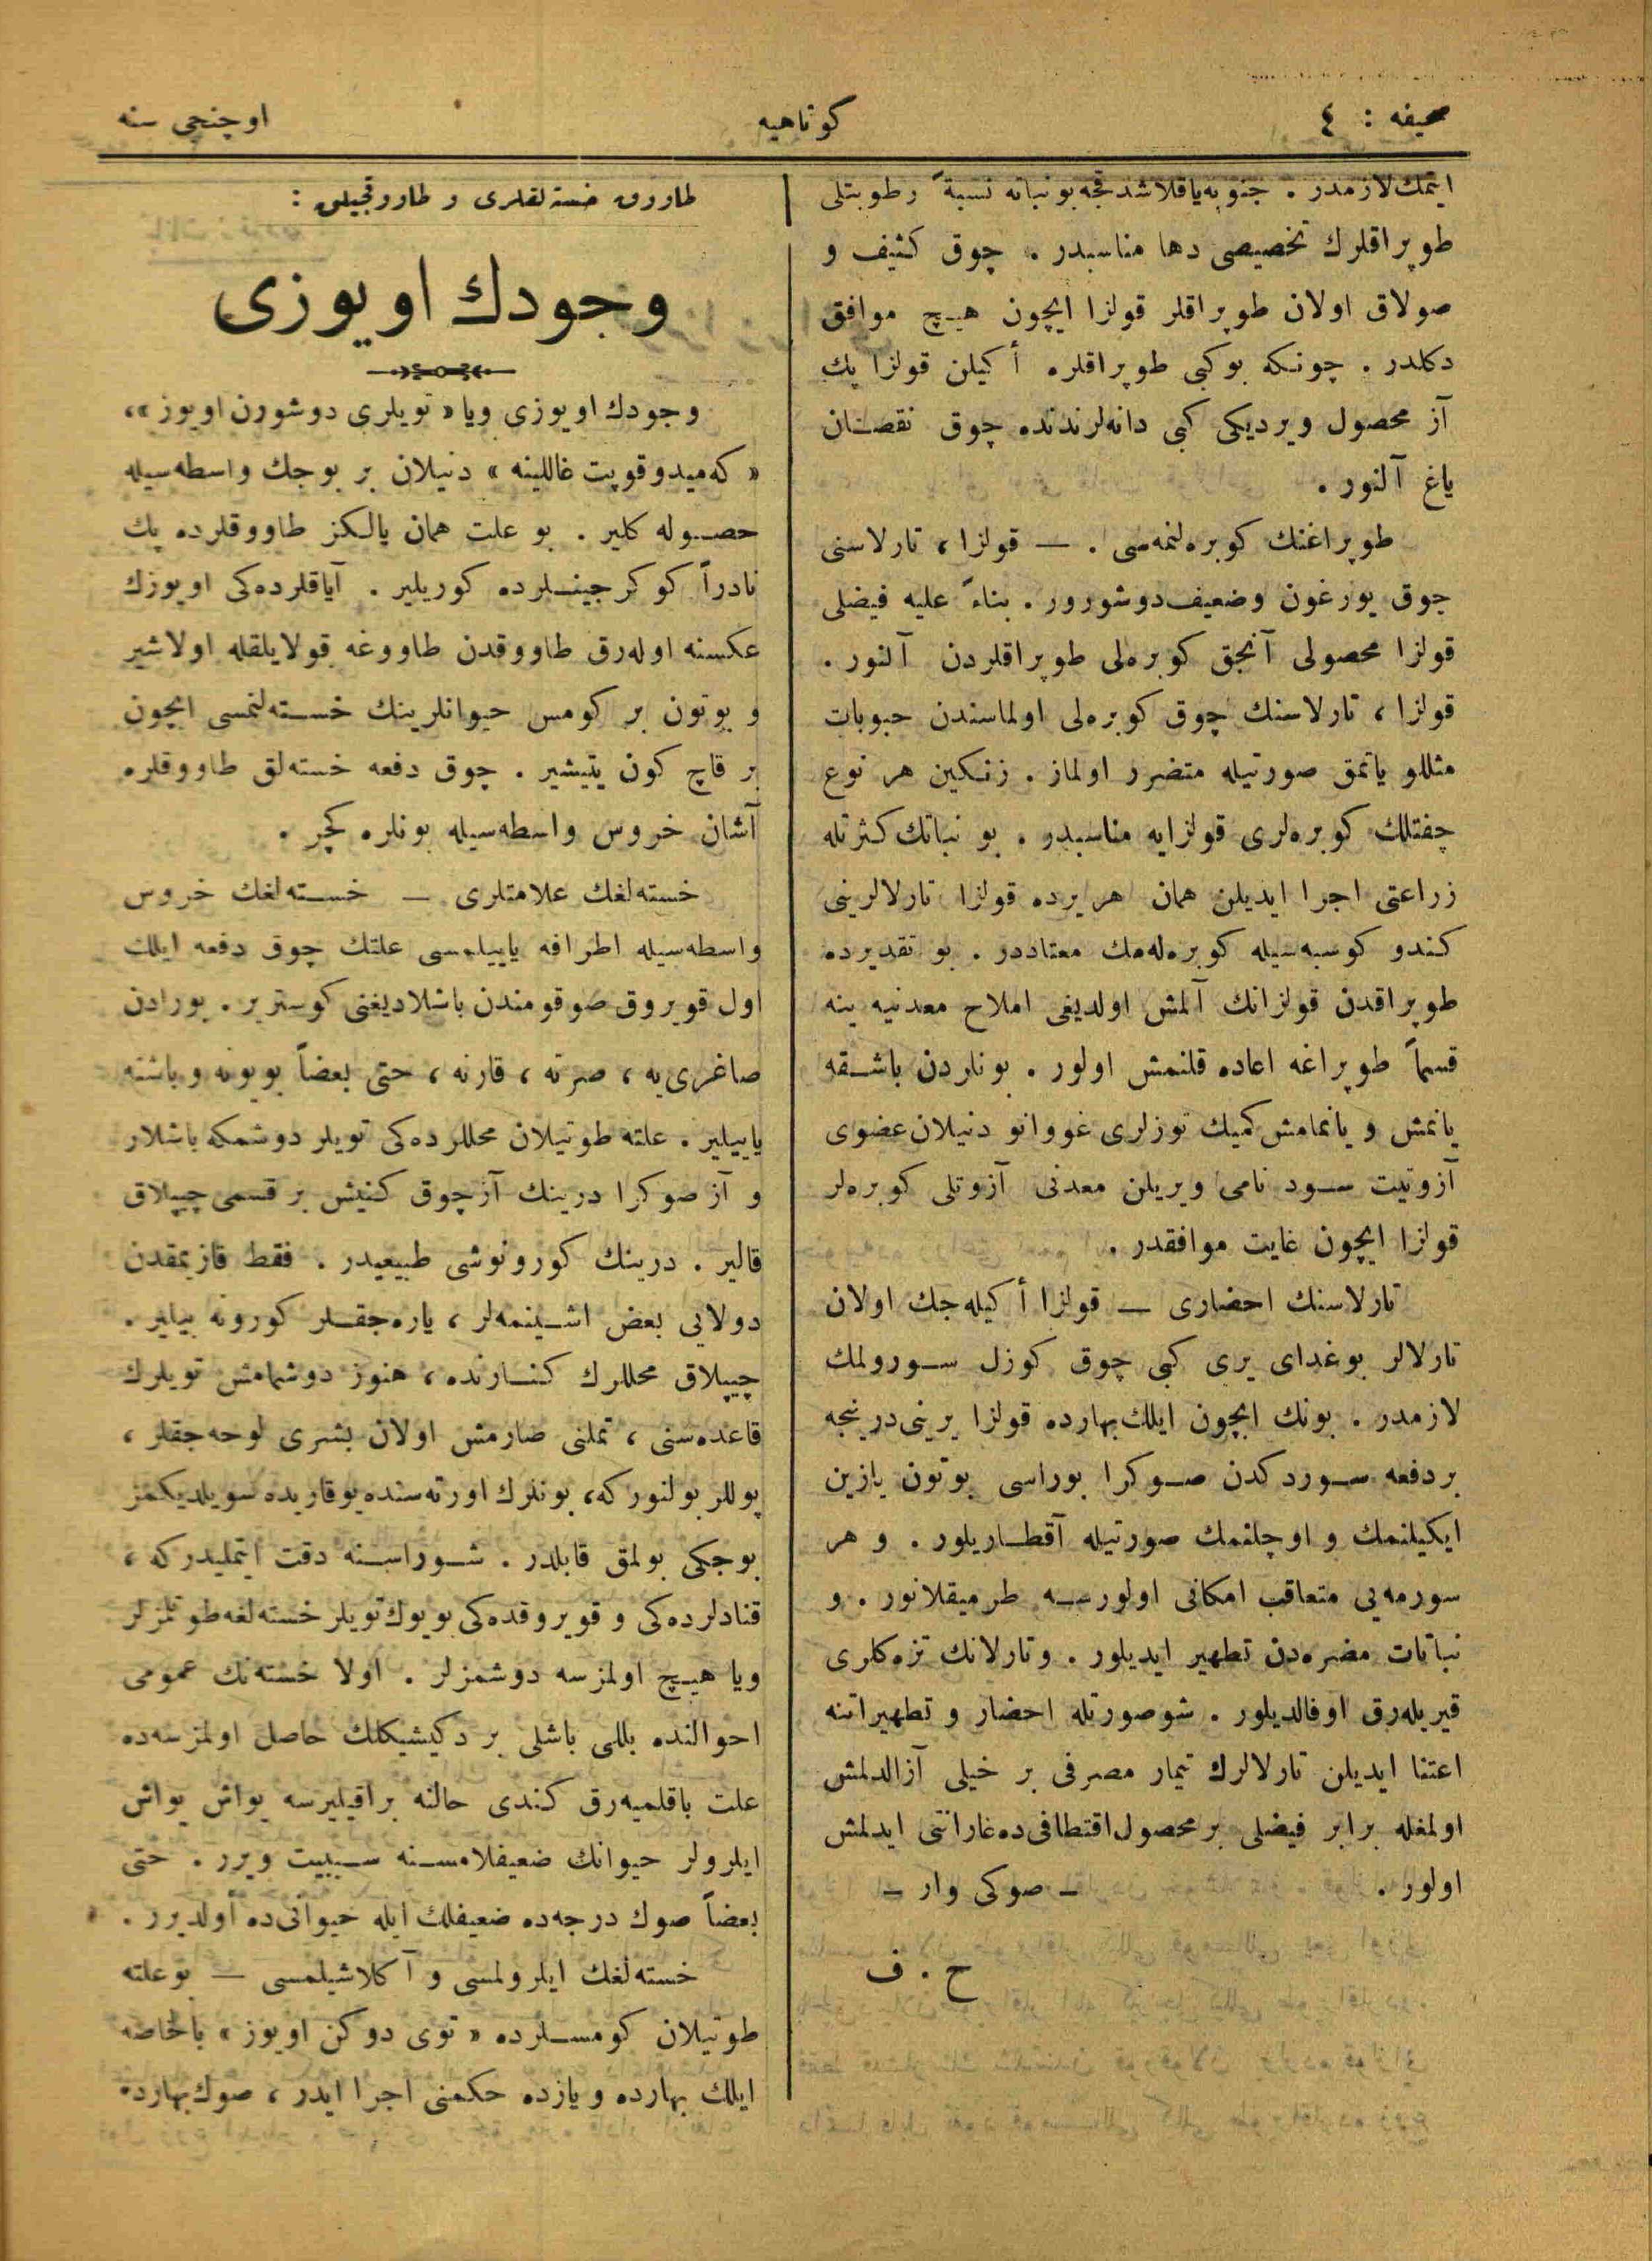 صحيفه : ٤
كوتاهيه
اوچنجى سنه
ايتمك لازمدر . جنوبه ياقلاشدقجه بو نباته نسبةً رطوبتلى
طوپراقلرك تخصيصى دها مناسبدر . چوق كثيف و
صولاق اولان طوپراقلر قولزا ايچون هيچ موافق
دكلدر . چونكه بوكبى طوپراقلره أكيلن قولزا پك
آز محصول ويرديكى كبى دانه‌لرندنده چوق نقصان
ياغ آلنور .
طوپراغنك كوبره‌لنمه‌سى . — قولزا ، تارلاسنى
چوق يورغون وضعيف دوشورور . بناءً عليه فيضلى
قولزا محصولى آنجق كوبره‌لى طوپراقلردن آلنور .
قولزا ، تارلاسنك چوق كوبره‌لى اولماسندن حبوبات
مثللو ياتمق صورتيله متضرر اولماز . زنكين هر نوع
چفتلك كوبره‌لرى قولزايه مناسبدر . بو نباتك كثرتله
زراعتى اجرا ايديلن همان هر يرده قولزا تارلالرينى
كندو كوسبه‌سيله كوبره‌له‌مك معتاددر . بو تقديرده
طوپراقدن قولزانك آلمش اولديغى املاح معدنيه ينه
قسماً طوپراغه اعاده قلنمش اولور . بونلردن باشقه
يانمش و يانمامش كميك توزلرى غووانو دنيلان عضوى
آزوتيت سود نامى ويريلن معدنى آزوتلى كوبره‌لر
قولزا ايچون غايت موافقدر .
تارلاسنك احضارى — قولزا أكيله‌جك اولان
تارلالر بوغداى يرى كبى چوق كوزل سورولمك
لازمدر . بونك ايچون ايلك بهارده قولزا يرينى درينجه
بردفعه سوردكدن صوكرا بوراسى بوتون يازين
ايكيلنمك و اوچلنمك صورتيله آقطاريلور . و هر
سورمه‌يى متعاقب امكانى اولورسه طرميقلانور . و
نباتات مضره‌دن تطهير ايديلور . و تارلانك تزه‌كلرى
قيريله‌رق اوفالديلور . شو صورتله احضار و تطهيراتنه
اعتنا ايديلن تارلالرك تيمار مصرفى بر خيلى آزالدلمش
اولمغله برابر فيضلى بر محصول اقتطافى ده غارانتى ايدلمش
اولور . — صوكى وار —
ح . ف
طاووق خسته‌لقلرى و طاووقجيلق :
وجودك اويوزى
وجودك اويوزى ويا « تويلرى دوشورن اويوز »،
« كه‌ميدوقوپت غاللينه » دنيلان بر بوجك واسطه‌سيله
حصوله كلير . بو علت همان يالكز طاووقلرده پك
نادراً كوكرجينلرده كوريلير . آياقلرده‌كى اويوزك
عكسنه اوله‌رق طاووقدن طاووغه قولايلقله اولاشير
و بوتون بر كومس حيوانلرينك خسته‌لنمسى ايچون
بر قاچ كون يتيشير . چوق دفعه خسته‌لق طاووقلره
آشان خروس واسطه‌سيله بونلره كچر .
خسته‌لغك علامتلرى — خسته‌لغك خروس
واسطه‌سيله اطرافه ياييلمسى علتك چوق دفعه ايلك
اول قويروق صوقومندن باشلاديغنى كوسترير . بورادن
صاغرى‌يه ، صرته ، قارنه ، حتى بعضاً بويونه و باشنه
ياييلير . علته طوتيلان محللرده‌كى تويلر دوشمكه باشلار
و آز صوكرا درينك آز چوق كنيش بر قسمى چيپلاق
قالير . درينك كورونوشى طبيعيدر . فقط قازيمقدن
دولايى بعض اشينمه‌لر ، ياره‌جقلر كورونه بيلير .
چيپلاق محللرك كنارنده ، هنوز دوشمامش تويلرك
قاعده‌سنى ، تملنى صارمش اولان بشرى لوحه‌جقلر ،
پوللر بولنوركه، بونلرك اورته‌سنده يوقاريده سويلديكمز
بوجكى بولمق قابلدر . شوراسنه دقت ايتمليدركه ،
قنادلرده‌كى و قويروقده‌كى بويوك تويلر خسته‌لغه طوتلمزلر
ويا هيچ اولمزسه دوشمزلر . اولا خسته‌نك عمومى
احوالنده بللى باشلى بر دكيشيكلك حاصل اولمزسه‌ده
علت باقلميه‌رق كندى حالنه براقيليرسه يواش يواش
ايلرولر حيوانك ضعيفلامسنه سببيت ويرر . حتى
بعضاً صوك درجه‌ده ضعيفلك ايله حيوانى ده أولديرر .
خسته‌لغك ايلرولمسى و آكلاشيلمسى — بو علته
طوتيلان كومسلرده « توى دوكن اويوز » بالخاصه
ايلك بهارده و يازده حكمنى اجرا ايدر ، صوك بهارده